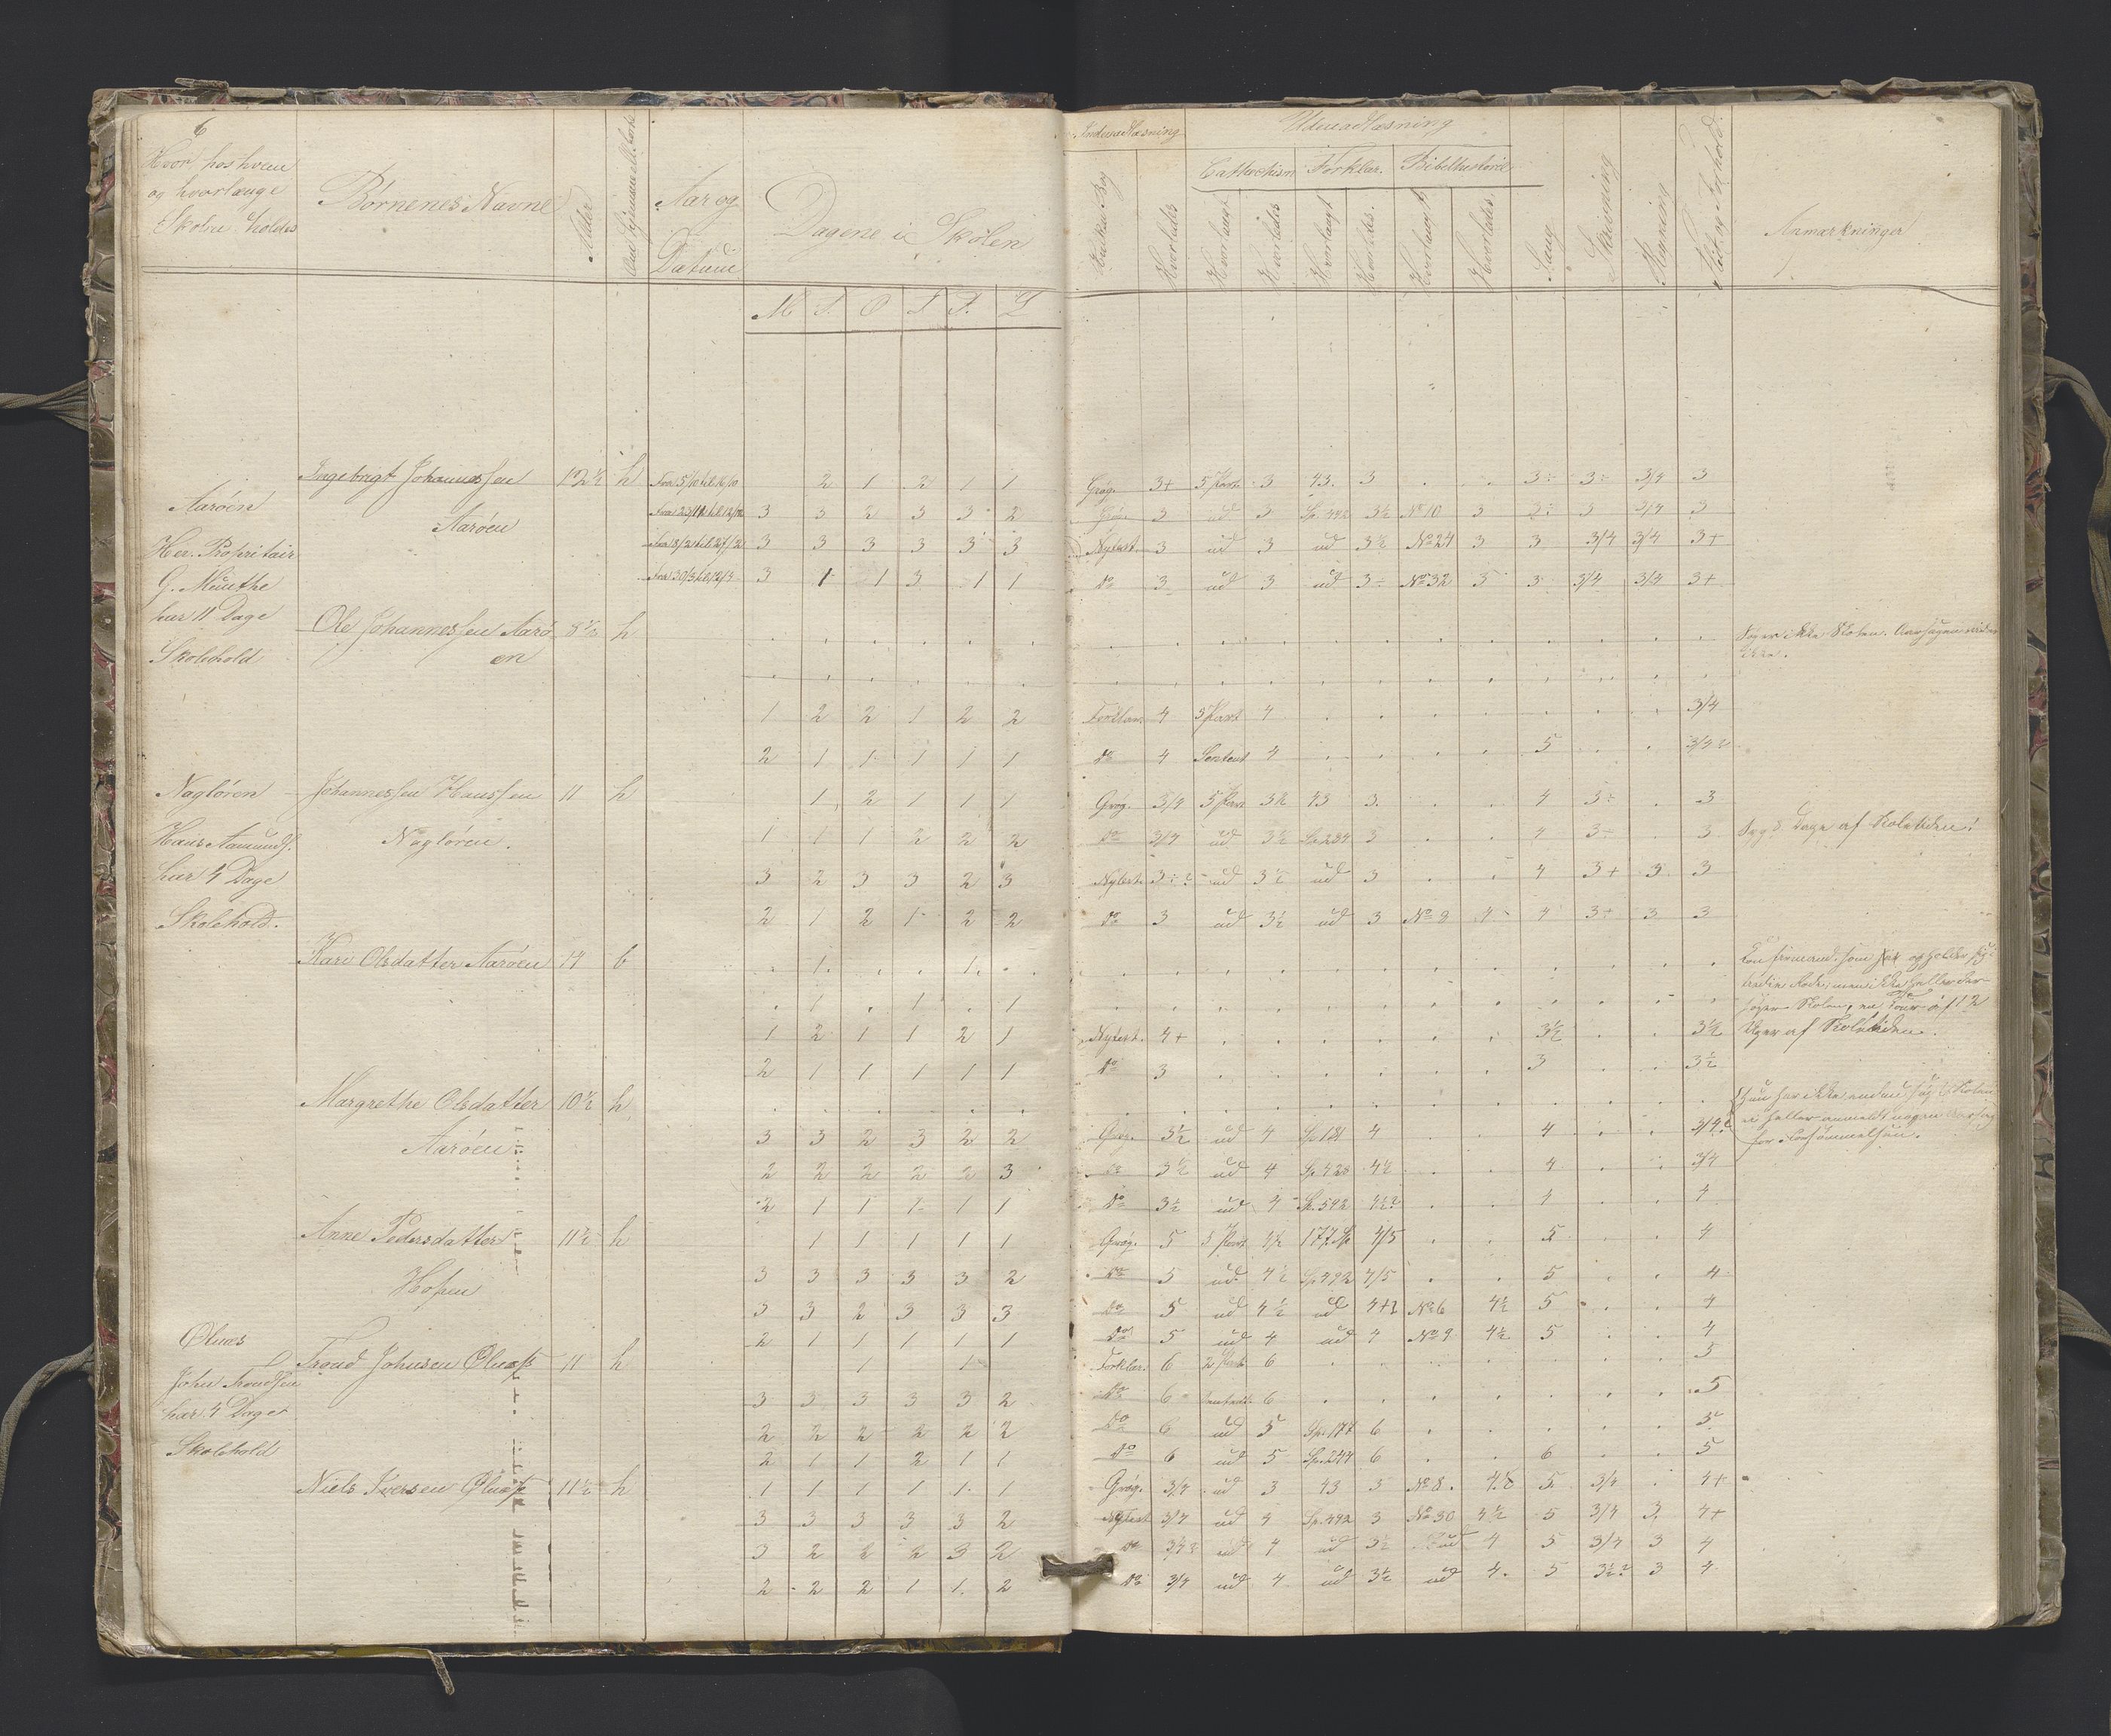 6
Hvor, hos hvem
og hvorlænge
Skolen holdes
Børnenes Navne
Alder
Aar og
Datum
Dagene i Skolen
M T. O T F. L
Indenadlæsning
Udenadlæsning
Hvilken Bog
Hvorledes
Cathechism
Forklar.
Bibelhistorie
Hvorlangt
Hvorledes
Hvorlangt
Hvorledes.
Hvorlangt
Hvorledes.
Sang
Skrivning
Regning
Flid og Forhold.
Anmærkninger
Ingebrigt Johannessen 12½ h Fra 5/10 til 16/10 2 1 2 1 1 Grøg. 3+ 5 Part. 3 43. 3 . . 3÷ 3÷ 3/4 3
Aarøen
Aarøen
3 3 2 3 3 2 3 ud 3 Sp. 492 3½ No 10 3 3÷ 3 3/4 3
Her. Propritair
3 3 3 3 3 3 Nytest. 3 ud 3 ud 3½ No 24 3 3 3/4 3/4 3+
G. Munthe
3 1 1 3 1 1 Do 3 ud 3 ud 3÷ No 32 3 3 3/4 3/4 3+
har 11 Dage
Skolehold
Ole Johannessen Aarø
en
8½ h
Søger ikke Skolen. Aarsagen vides
ikke.
1 2 2 1 2 2 Forklar. 4 5 Part 4 3/4
2 1 1 1 1 1 Do 4 4 5 3/4
Nagløren Johannessen Hanssen 11 h 1 2 1 1 1 Grøg. 3/4 5 Part 3½ 43 3. . . 4 3÷ . 3
Hans Aamunds.
Nagløren.
1 1 1 2 2 2 Do 3/4 ud 3½ Sp 284 3 . . 4 3÷ . 3 Syg 3 Dage af Skoletiden.
har 4 Dage
3 2 3 3 2 3 Nytest. 3÷? ud 3½ ud 3 . . 4 3+ 3 3
Skolehold.
2 1 2 1 2 2 Do 3 ud 3½ ud 3 No 8 4 4 3÷ 3 3
Kari Olsdatter Aarøen 14 b . 1. . . 1. .
Konfirmand. som opholder sig
men ikke heller der
søger Skolen
Uger af Skoletiden.
. 1 . 1 . 1
1 2 1 1 2 1 Nytest. 4+ 3½ 3½
2 1 1 1 1 1 Do 3 3 3½
Margrethe Olsdatter 10½ h
Aarøen
Hun har ikke endnu søgt Skolen,
ei heller anmeldt nogen Aarsag
for Forsømmelsen.
3 3 2 3 2 2 Grøg. 3½ ud 4 Sp 181 4 . . 4 . . 3/4?
2 2 2 2 2 3 Do 3½ ud 4 Sp. 428 4½ . . 4 . . 3/4
2 1 1 1 1 1 Do 3½ ud 4 Sp. 592 4½? . . 4 . . 4
Anne Pedersdatter 11½ h 1 1 1 1 1 Grøg. 5 5 Part 4½ 177 Sp 4/5 . . 5 . . 4
Hofen
3 3 3 3 3 2 Do 5 ud 4½ Sp. 492 4/5 . . 5 . . 4
3 3 2 3 3 3 Do 5 ud 4½ ud 4+? No 6 4½ 5 . . 4
2 1 1 1 1 1 Do 5 ud 4 ud 4 No 9 4½ 5 . . 4
Ølnæs
Trond Johnsen Ølnæs 11 h 1 1 Forklar. 6 2 Part. 6 5
John Trondsen
3 3 3 3 3 2 Do 6 6 5
har 4 Dages
2 2 2 2 2 2 Do 6 ud 5 Sp. 177 6 5
Skolehold
2 1 1 2 1 1 Do 6 ud 5 Sp. 244 6 . . 6 . . 5
Niels Iversen Ølnæs 11½ h 1 1 1 1 1 1 Grøg. 3/4 ud 3 43 3 No 8. 5 3/4 . 4+
3 3 3 3 3 2 Nytest 3/4 ud 4 Sp. 492 3 No 30 4½ 5 3/4 3 4+
3 2 2 2 3 2 Do 3/4? ud 4 ud 3½ ud 4 5 3/4 3 4
2 2 2 1 1. 2 Do 3/4 ud 4 ud 3½ ud 4. 5 3½? 3 4